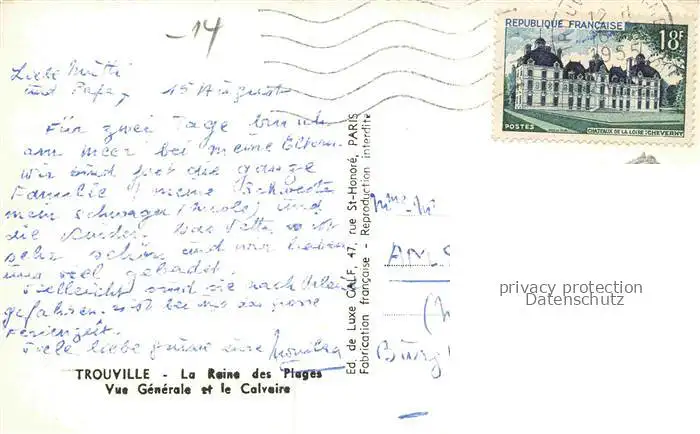 -14
Liebe Mutti
und Papa, 15 August
Für zwei Tage bin ich
am meer bei meine Eltern.
wir sind fast die ganze
Familie (meine Schwester
mein schwager (Nicole) und
die Kinder. Das Wetter ist
sehr schön und wir haben
uns viel gebadet.
Vielleicht sind sie nach
gefahren. ist bei uns das
Ferienzeit.
Viele liebe grüsse eure Monika
TROUVILLE - La Reine des Plages
Vue Générale et le Calvaire
Ed. de Luxe GALF, 47, rue St-Honoré, PARIS
Fabrication française - Reproduction interdite
REPUBLIQUE FRANÇAISE
18F
POSTES
CHATEAUX DE LA LOIRE : CHEVERNY
1955
Mme. M
Burg
privacy protection
Datenschutz